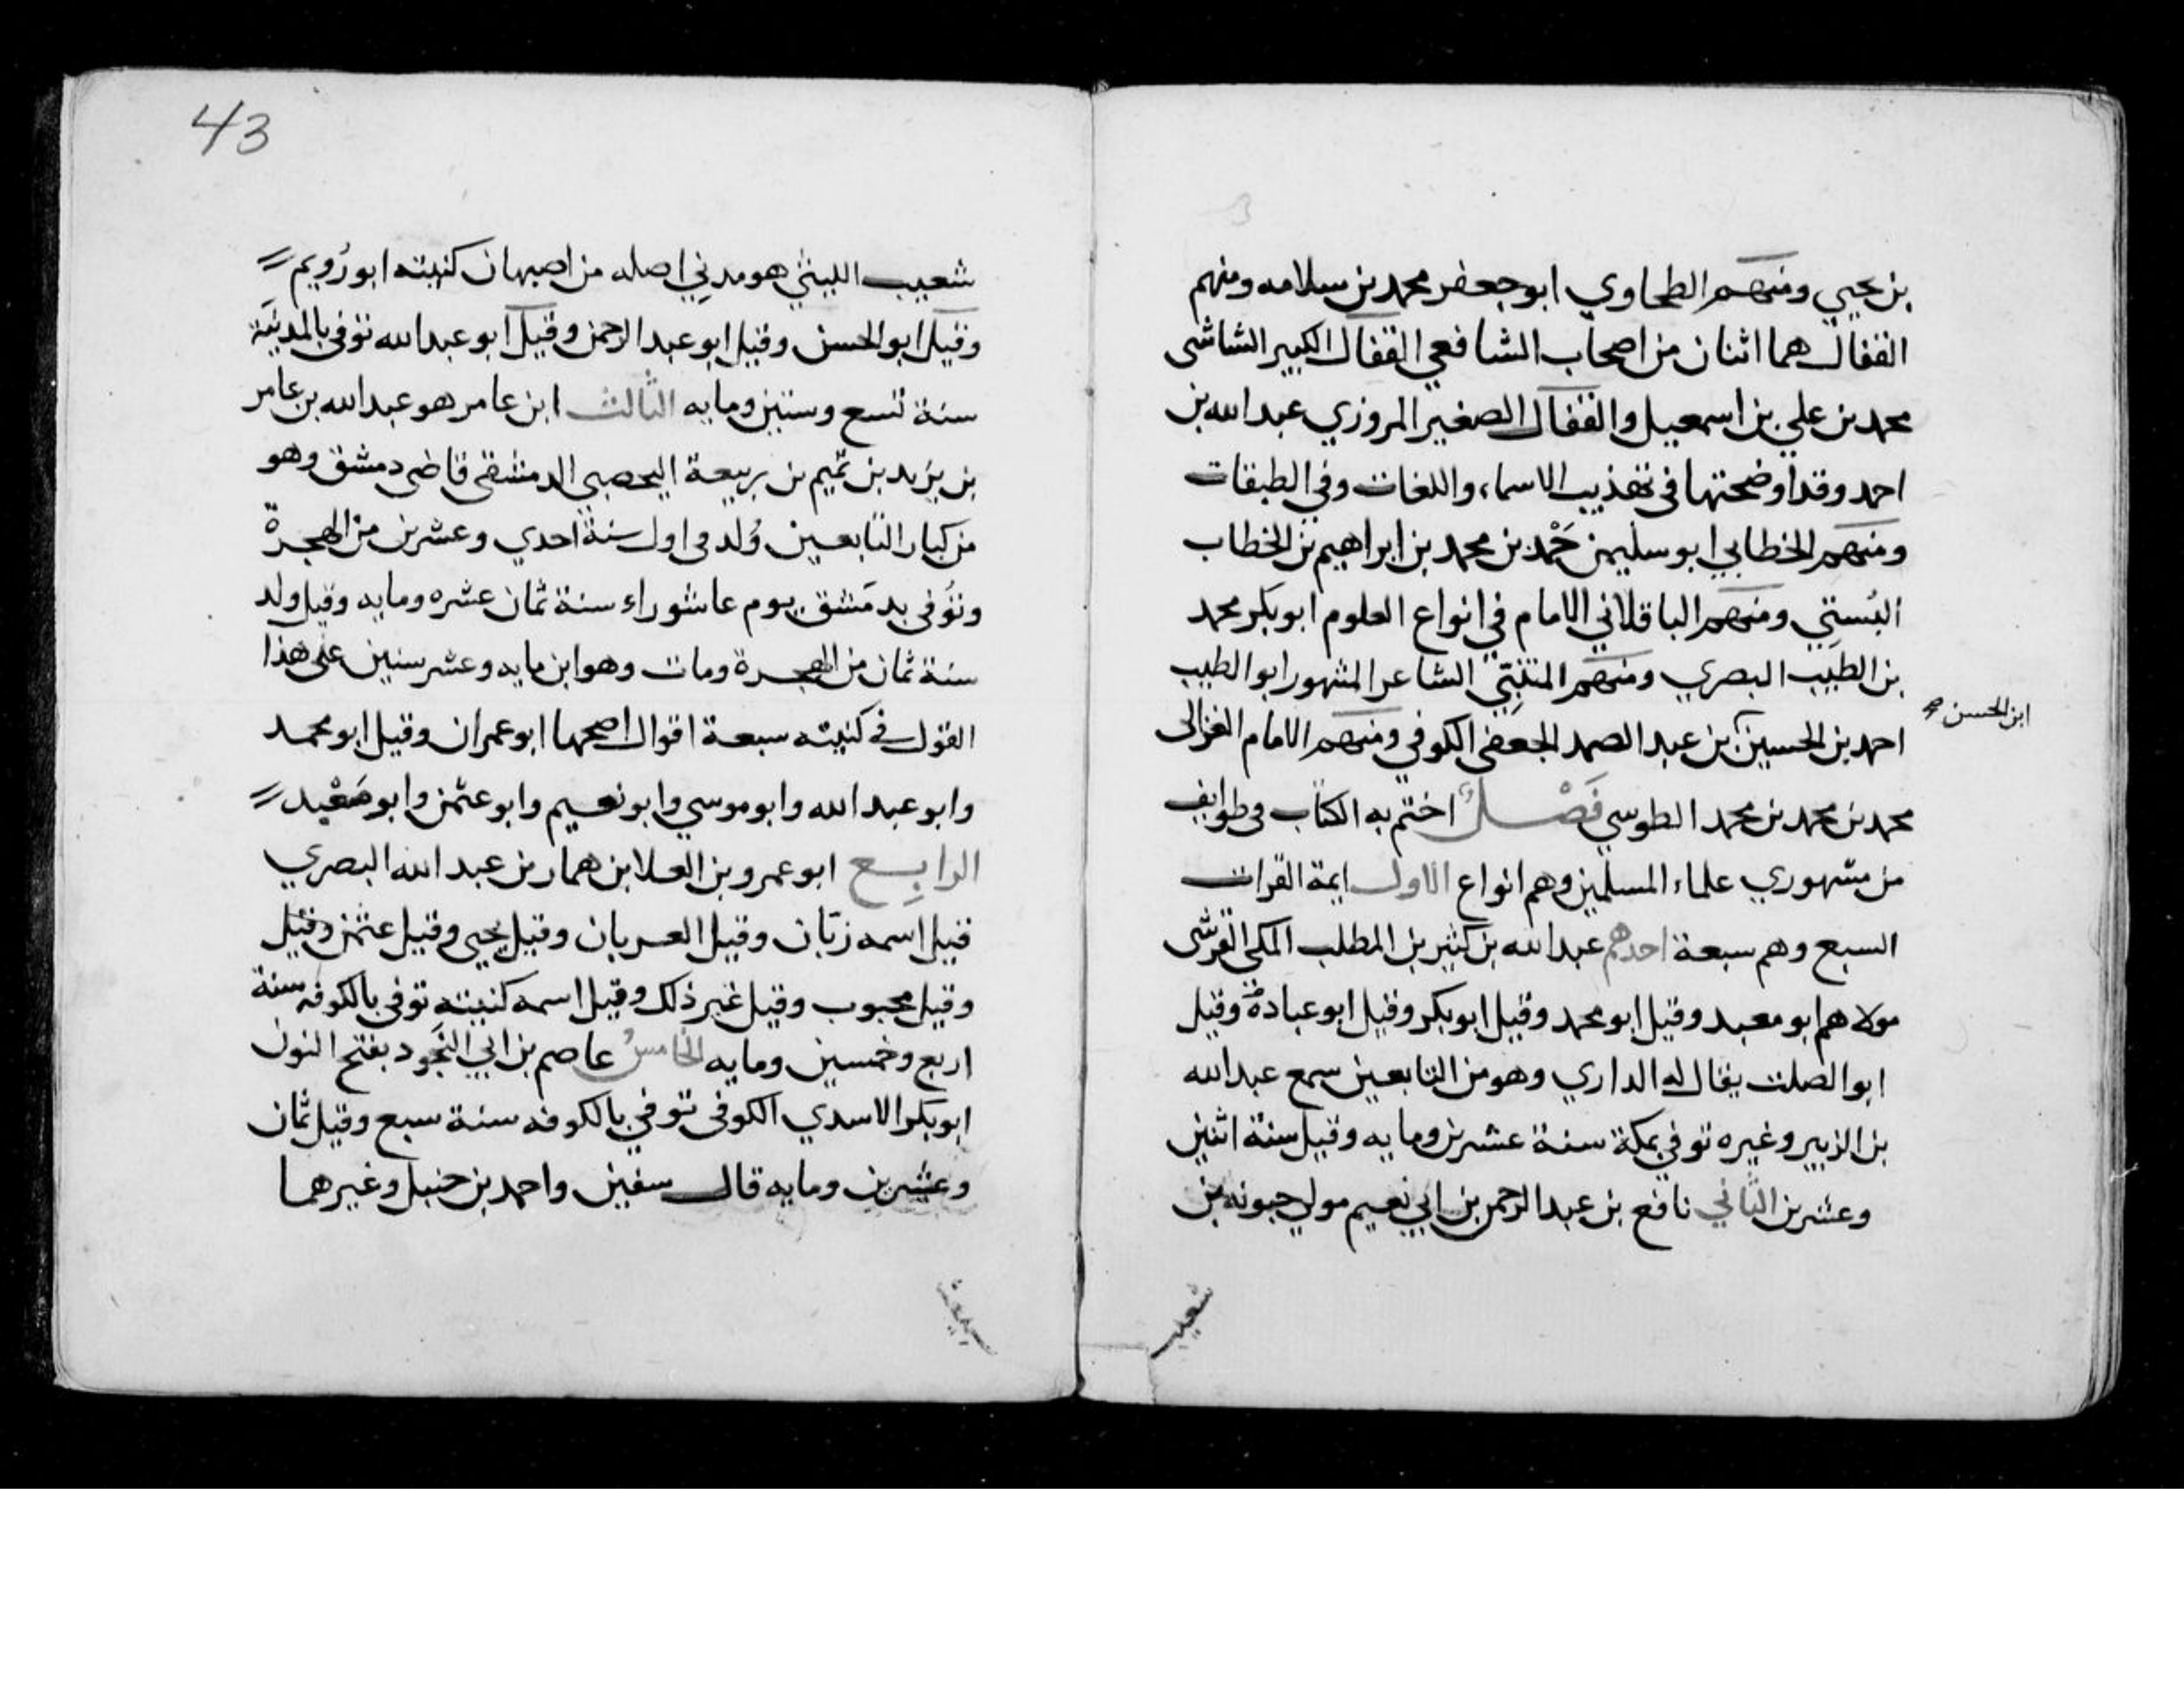 بن يحيي ومنهم الطحاوي ابو جعفر محمد بن سلامه ومنهم
القفال هما اثنان من اصحاب الشافعي القفال الكبير الشاشى
محمد بن علي بن اسمعيل والقفال الصغير المروزي عبد الله بن
احمد وقد اوضحتها فى تهذيب الاسماء واللغات وفي الطبقات
ومنهم الخطابي ابو سليمن حَمْد بن محمد بن ابراهيم بن الخطاب
البُستِي ومنهم الباقلاني الامام في انواع العلوم ابو بكر محمد
بن الطيب البصري ومنهم المتنبّي الشاعر المشهور ابو الطيب
احمد بن الحسين بن عبد الصمد الجعفى الكوفي ومنهم الامام الغزالى
ابن الحسن
محمد بن محمد بن محمد الطوسي فَصْـــلٌ اختم به الكتاب فى طوايف
من مشهوري علماء المسلمين وهم انواع الاول ايمة القرات
السبع وهم سبعة احدهم عبد الله بن كثير بن المطلب المكى القرشى
مولاهم ابو معبد وقيل ابو محمد وقيل ابو بكر وقيل ابو عبادة وقيل
ابو الصلت يقال له الداري وهو من التابعين سمع عبد الله
بن الزبير وغيره توفي بمكة سنة عشرين ومايه وقيل سنة اثنين
وعشرين الثاني نافع بن عبد الرحمن بن ابي نعيم مولي جبونه بن
شعيب
43
شعيب الليثي هو مدني اصله من اصبهان كنيته ابو رُويم
وقيل ابو الحسن وقيل ابو عبد الرحمن وقيل ابو عبد الله توفى بالمدينة
سنة تسع وستين ومايه الثالث ابن عامر هو عبد الله بن عامر
بن يزيد بن تميم بن ربيعة اليحصبي الدمشقى قاضى دمشق وهو
من كبار التابعين وُلد فى اول سنة احدي وعشرين من الهجرة
وتُوفى بدمَشق يوم عاشوراء سنة ثمان عشره ومايه وقيل ولد
سنة ثمان من الهجرة ومات وهو ابن مايه وعشر سنين على هذا
القول في كنيته سبعة اقوال اصحها ابو عمران وقيل ابو محمد
وابو عبد الله وابو موسي وابو نعيم وابو عثمن وابو مَعْبد
الرابع ابو عمرو بن العلا بن همار بن عبد الله البصري
قيل اسمه زبّان وقيل العريان وقيل يحيى وقيل عثمن وقيل
وقيل محبوب وقيل غير ذلك وقيل اسمه كنيته توفى بالكوفه سنة
اربع وخمسين ومايه الخامسُ عاصم بن ابي النَجود بفتح النون
ابو بكر الاسدي الكوفى توفي بالكوفه سنة سبع وقيل ثمان
وعشرين ومايه قال سفين واحمد بن حنبل وغيرهما